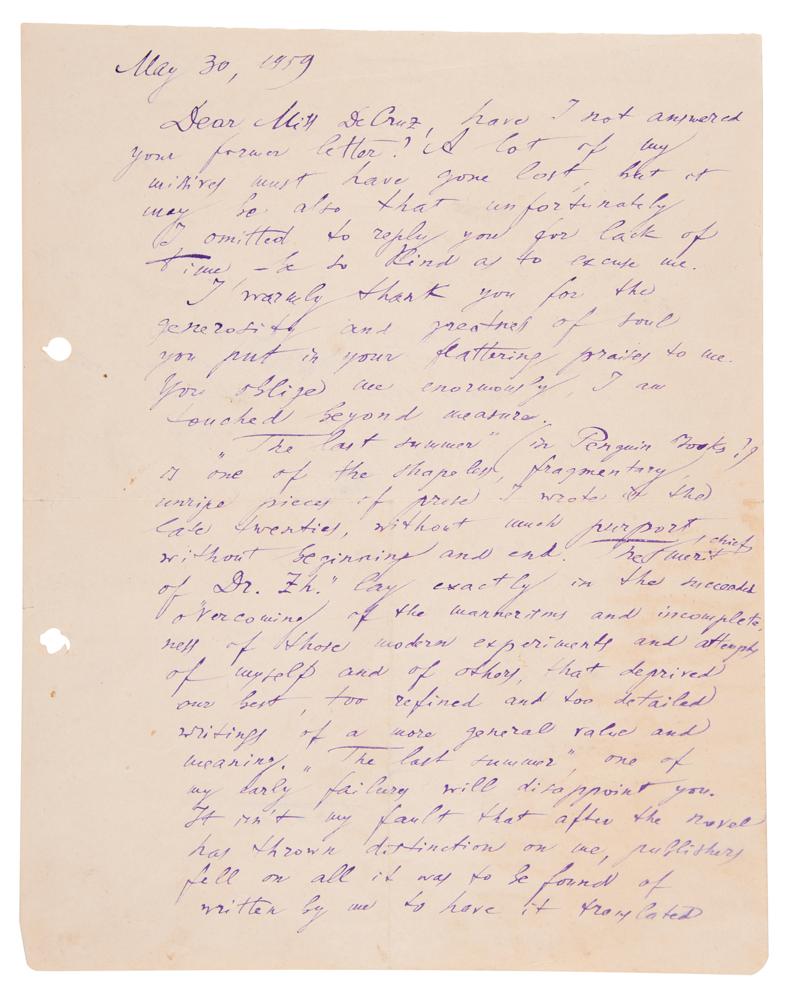 May 30, 1959
Dear Miss DeCruz, have I not answered
your former letter? A lot of my
missives must have gone lost, but it
may be also that unfortunately
I omitted to reply you for lack of
time – be so kind as to excuse me.
I warmly thank you for the
generosity and greatness of soul
you put in your flattering praises to me.
You oblige me enormously, I am
touched beyond measure.
„The last summer" (in Penguin Books?)
is one of the shapeless, fragmentary,
unripe pieces of prose I wrote in the
late twenties, without much purport,
without beginning and end. The chief merit
of „Dr. Zh." lay exactly in the
overcoming of the mannerisms and incomplete-
ness of those modern experiments and attempts
of myself and of others, that deprived
our best, too refined and too detailed
writings of a more general value and
meaning. „The last summer", one of
my early failures will disappoint you.
It isn't my fault that after the novel
has thrown distinction on me, publishers
fell on all it was to be found of
written by me to have it translated